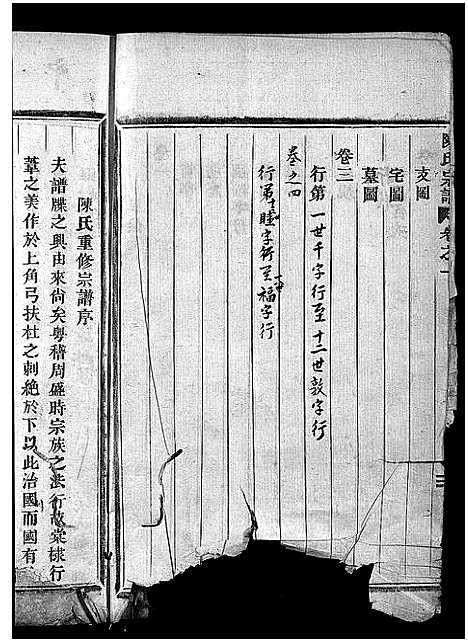 陳氏宗譜 卷之一
支圖
宅圖
墓圖
卷三
行第一世千字行至十二世敦字行
卷之四
行第十三睦字行至十福字行
陳氏重修宗譜序
夫譜牒之興由來尙矣粤稽周盛時宗族之法行故棠棣行
葦之美作於上角弓扶杜之刺絶於下以此治國而國有